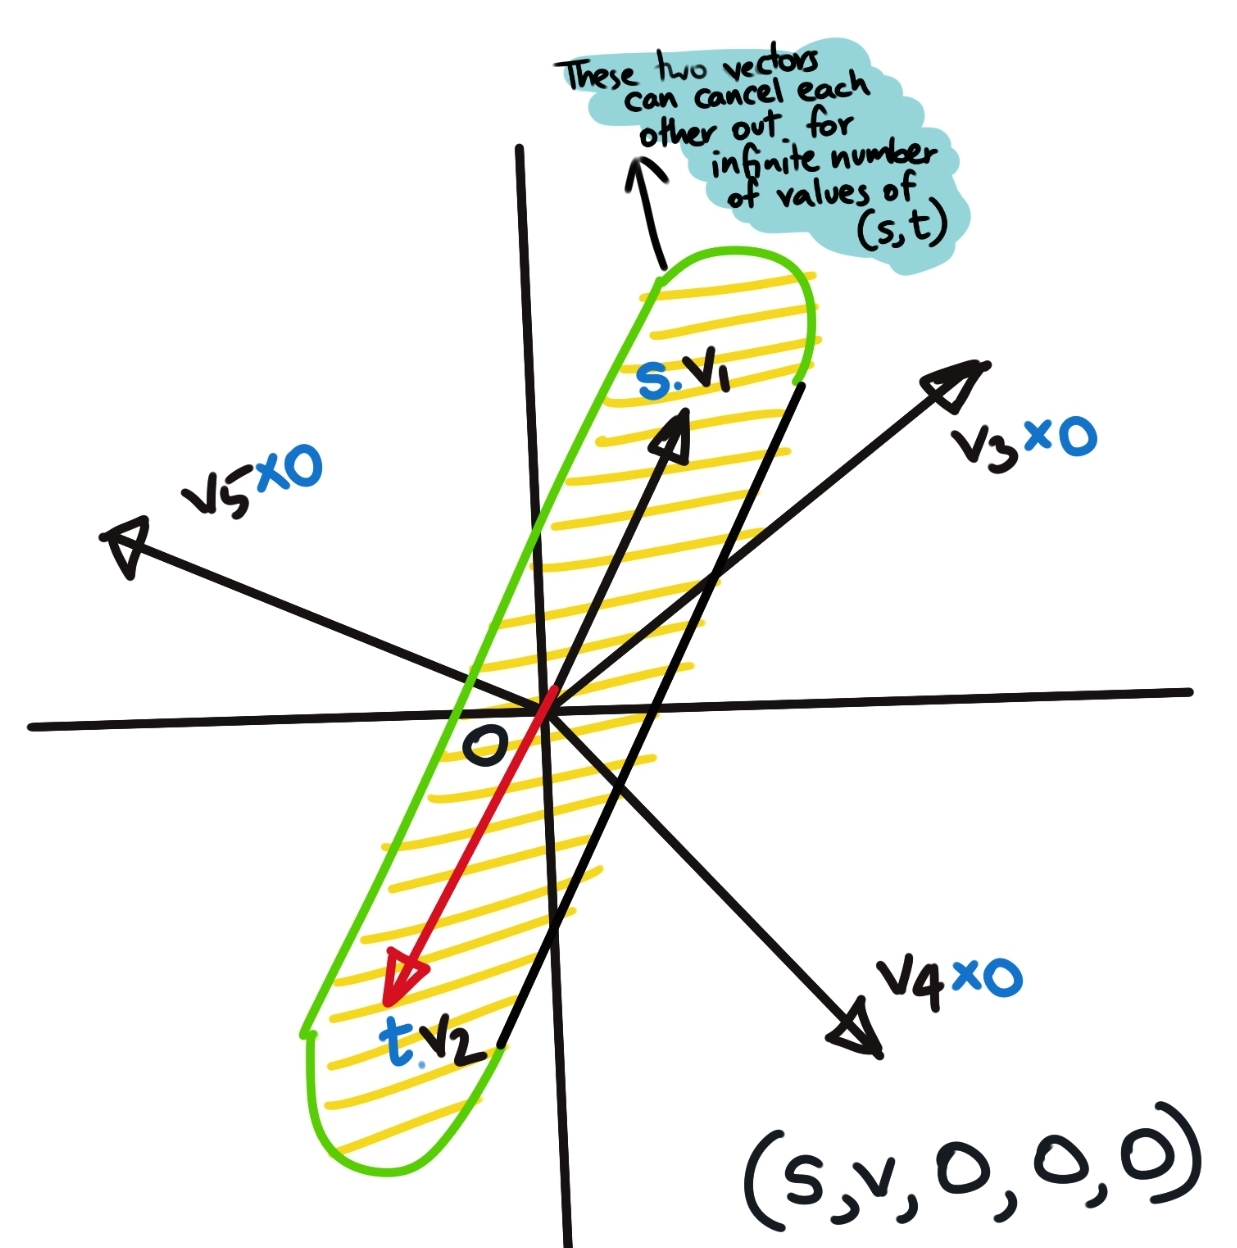 These two vectors
can cancel each
other out for
infinite number
of values of
(s,t)
s.v1
v3x0
v5x0
O
v4x0
t.v2
(s,v,0,0,0)